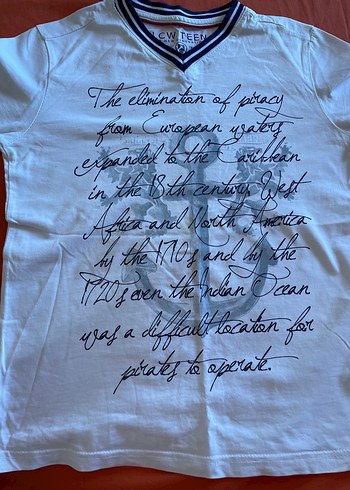 CW TEEN
The elimination of piracy
from European waters
expanded to the Caribbean
in the 18th century, West
Africa and North America
by the 1710s and by the
1720s even the Indian Ocean
was a difficult location for
pirates to operate.